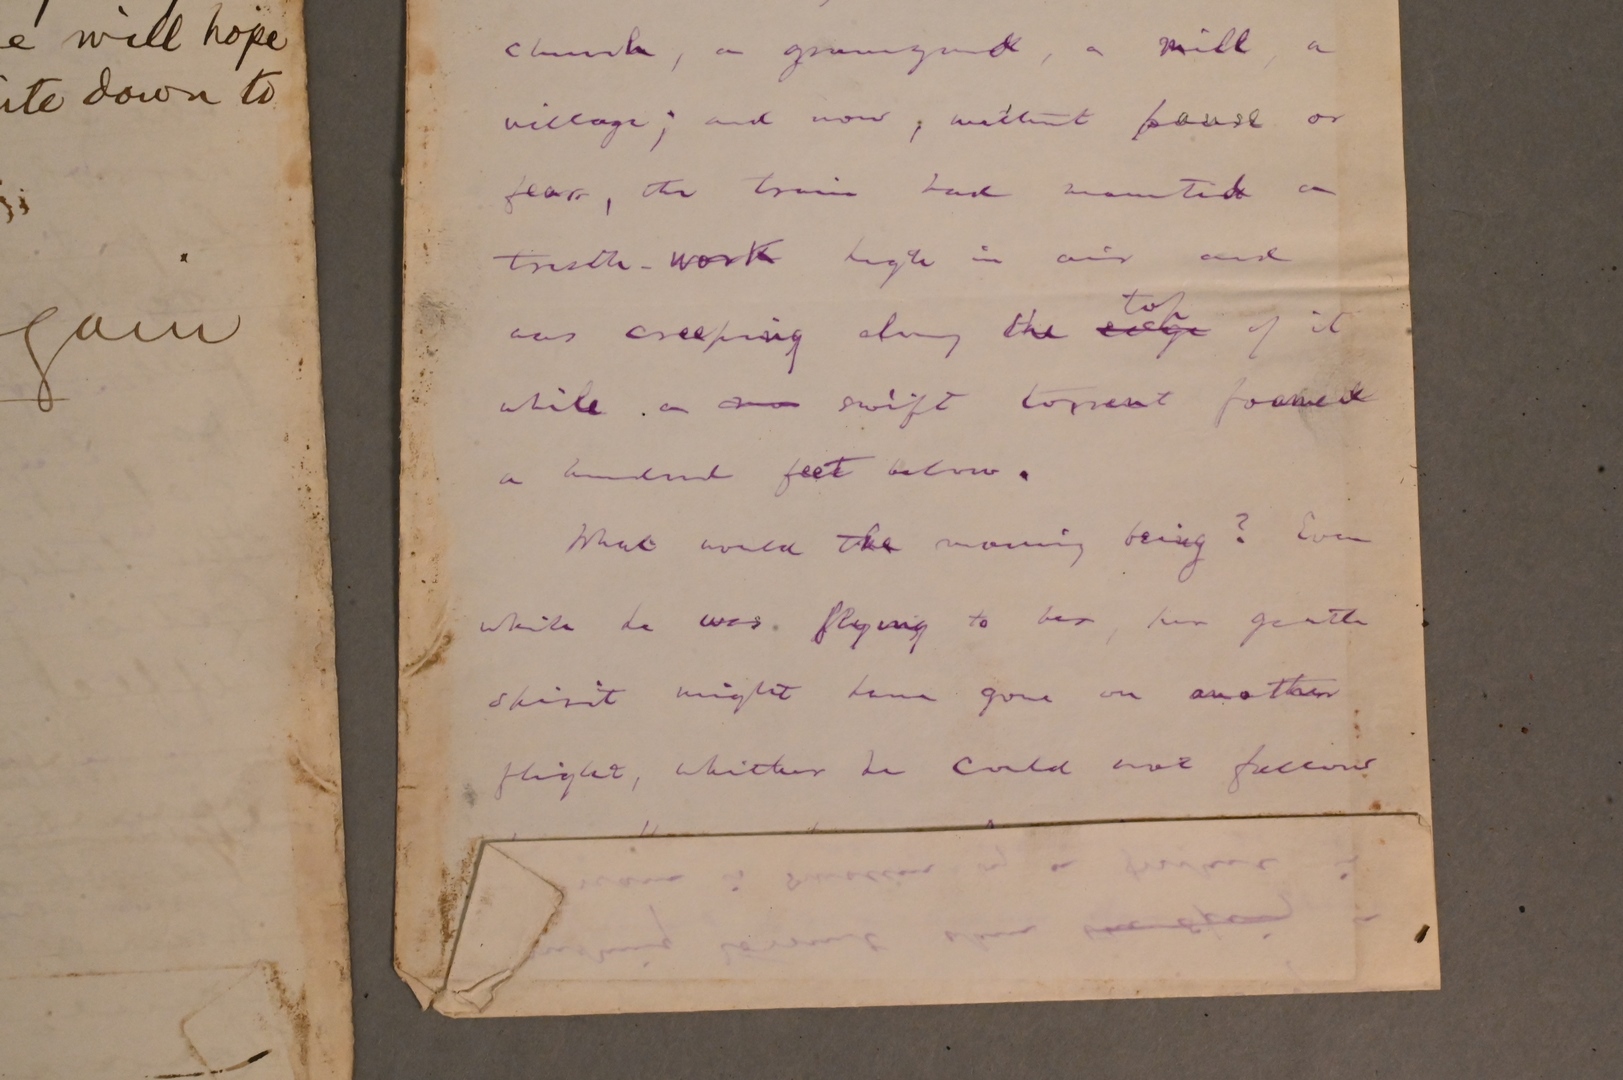 e will hope
ite down to
gain
church, a graveyard, a mill, a
village; and now, without pause or
fear, the train had mounted a
trestle-work high in air and
was creeping along the edge top of it
while a swift torrent foamed
a hundred feet below.
What would the morning bring? Even
while he was flying to her, her gentle
spirit might have gone on another
flight, whither he could not follow